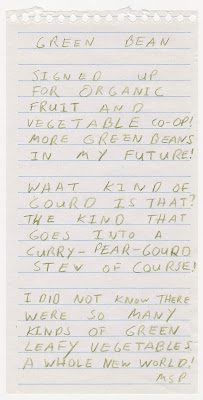 GREEN BEAN
SIGNED UP
FOR ORGANIC
FRUIT AND
VEGETABLE CO-OP!
MORE GREEN BEANS
IN MY FUTURE!
WHAT KIND OF
GOURD IS THAT?
THE KIND THAT
GOES INTO A
CURRY-PEAR-GOURD
STEW OF COURSE!
I DID NOT KNOW THERE
WERE SO MANY
KINDS OF GREEN
LEAFY VEGETABLES.
A WHOLE NEW WORLD!
MSP